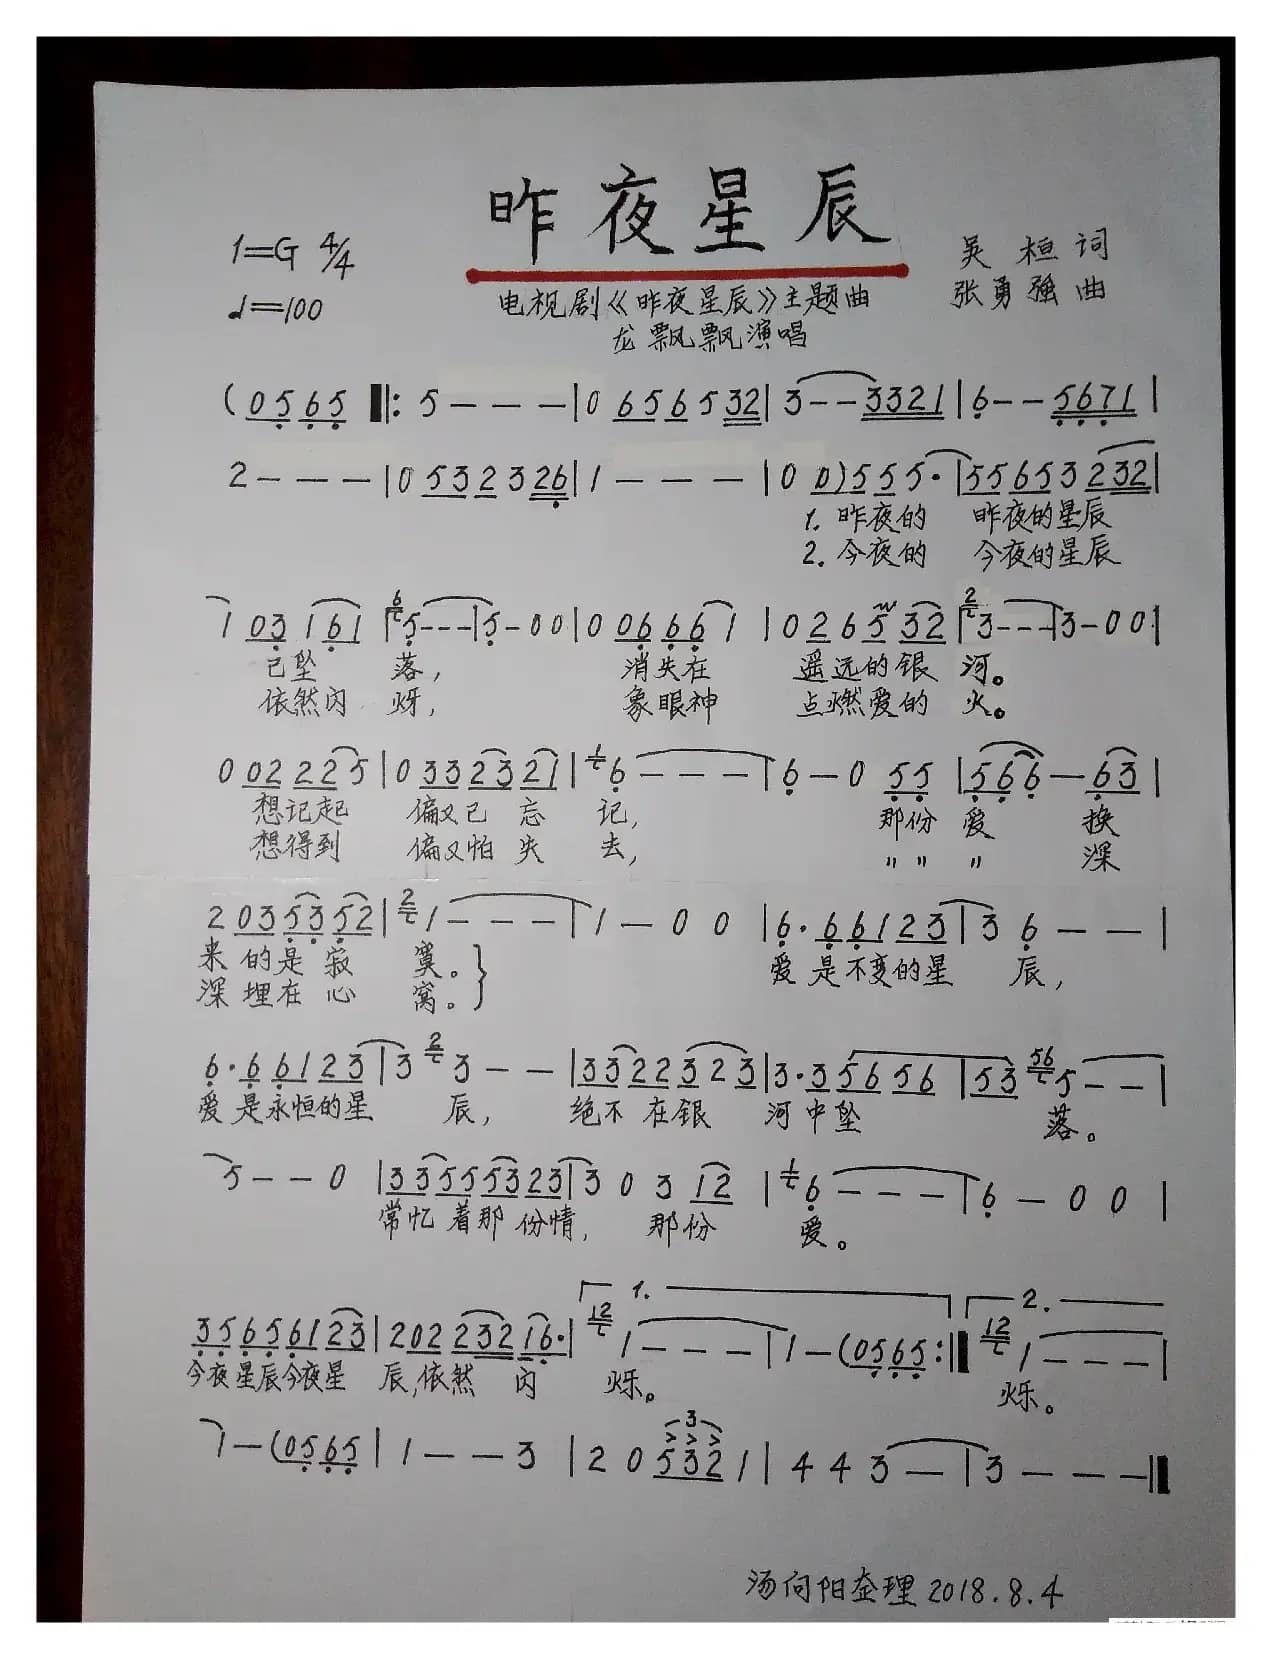 昨夜星辰
1=G 4/4
吴桓词
♩=100
电视剧《昨夜星辰》主题曲
张勇强曲
龙飘飘演唱
(0565 ‖: 5 - - - | 0 656532 | 3 - - 3321 | 6 - - 5671 |
2 - - - | 0 5323 26 | 1 - - - | 0 0) 55 5· | 55653232 |
1. 昨夜的 昨夜的星辰
2. 今夜的 今夜的星辰
1 03 161 | 6 5 - - - | 5 - 0 0 | 0 0666 1 | 0 26532 | 2 3 - - - | 3 - 0 0 |
已坠 落, 消失在 遥远的银 河。
依然闪 烁, 象眼神 点燃爱的 火。
0 02225 | 0 332321 | 1 6 - - - | 6 - 0 55 | 566 - 63 |
想记起 偏又已忘 记, 那份爱 换
想得到 偏又怕失 去, 〃〃〃 深
2 035352 | 2 1 - - - | 1 - 0 0 | 6·66123 | 3 6 - - |
来的是寂 寞。} 爱是不变的星 辰,
深埋在心 窝。
6·66123 | 3 2 3 - - | 3322323 | 3·35656 | 53 56 5 - - |
爱是永恒的星 辰, 绝不在银 河中坠 落。
5 - - 0 | 33555323 | 3 0 3 12 | 1 6 - - - | 6 - 0 0 |
常忆着那份情, 那份 爱。
1. 2.
35656123 | 202 232 16· | 12 1 - - - | 1 - (0565 :‖ 12 1 - - - |
今夜星辰今夜星 辰,依然 闪 烁。 烁。
3
1 - (0565 | 1 - - 3 | 2 0 532 1 | 4 4 3 - | 3 - - - ‖
汤向阳整理 2018.8.4